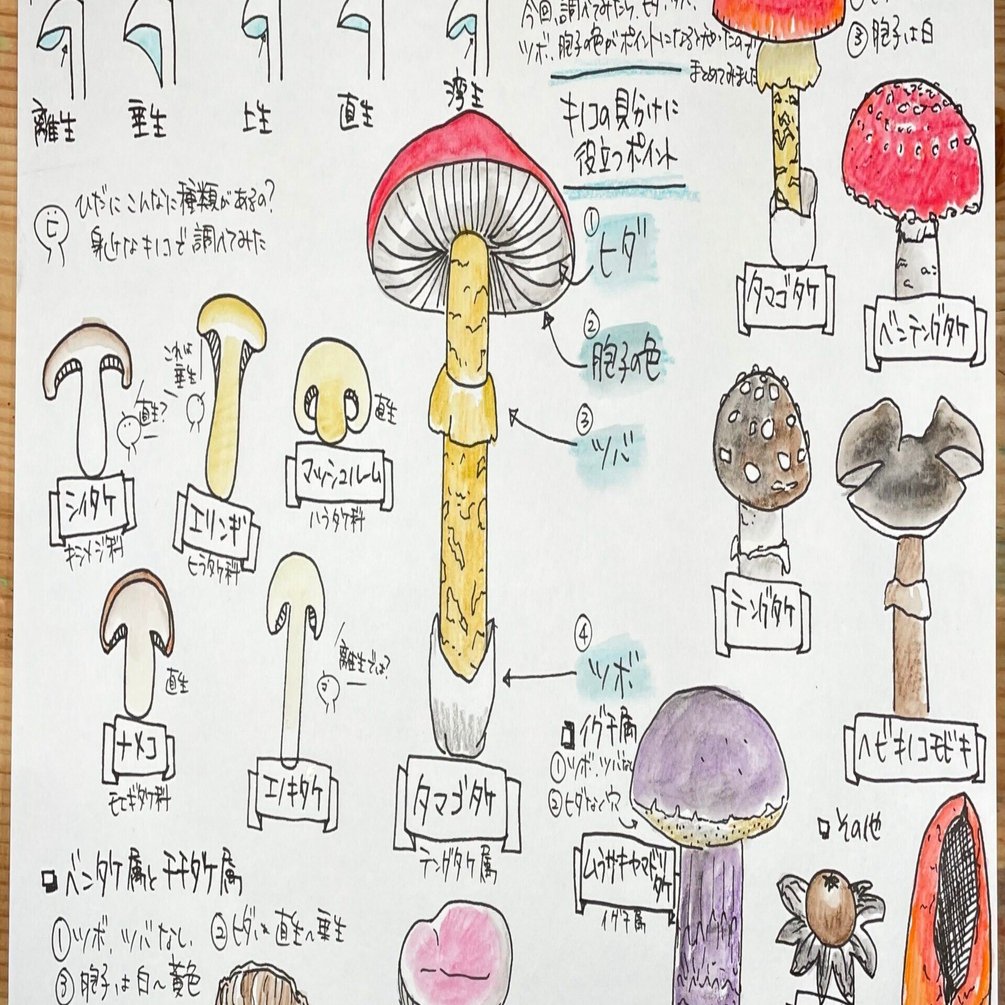 離生
垂生
上生
直生
湾生
今回、調べてみたら、ヒダ、ツバ、
ツボ、胞子の色がポイントになるとわかったので
まとめてみました
③胞子は白
キノコの見分けに
役立つポイント
ひだにこんなに種類があるの?
身近なキノコで調べてみた
①ヒダ
②胞子の色
③ツバ
④ツボ
タマゴタケ
ベニテングタケ
直生?
これは
垂生
直生
シイタケ
キシメジ科
エリンギ
ヒラタケ科
マッシュルーム
ハラタケ科
テングタケ
ヘビキノコモドキ
直生
離生では?
ナメコ
モエギタケ科
エノキタケ
タマゴタケ
テングタケ属
イグチ属
①ツボ、ツバなし
②ヒダなく穴
ムラサキヤマドリ
タケ
イグチ属
その他
ベニタケ属とチチタケ属
①ツボ、ツバなし
②ヒダは直生〜垂生
③胞子は白〜黄色